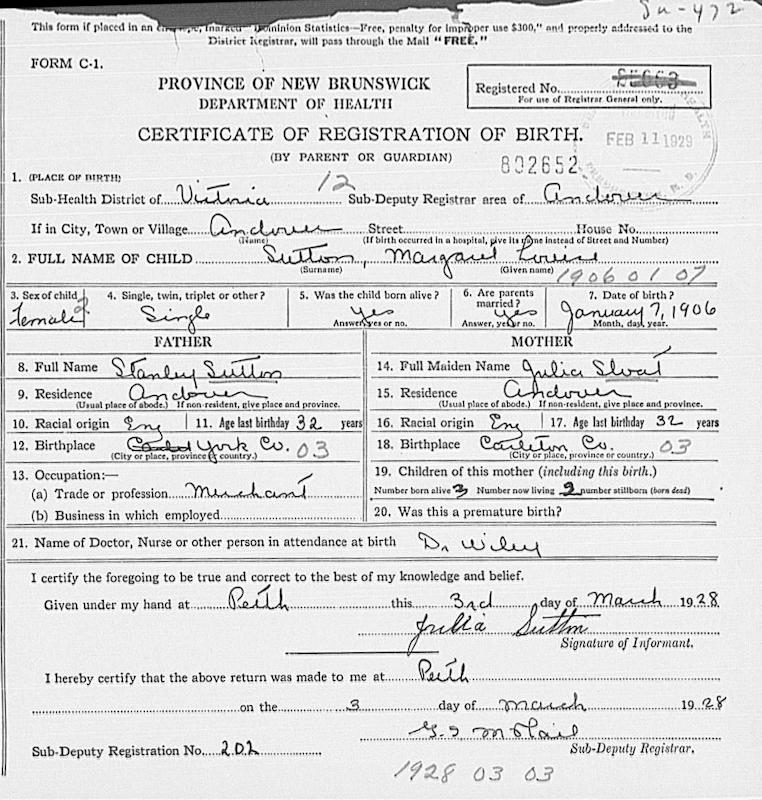 Su-472
This form if placed in an envelope, marked "Dominion Statistics—Free, penalty for improper use $300," and properly addressed to the
District Registrar, will pass through the Mail "FREE."
FORM C-1.
PROVINCE OF NEW BRUNSWICK
DEPARTMENT OF HEALTH
Registered No.
For use of Registrar General only.
CERTIFICATE OF REGISTRATION OF BIRTH.
FEB 11 1929
(BY PARENT OR GUARDIAN)
802652
1. (PLACE OF BIRTH)
12
Sub-Health District of Victoria Sub-Deputy Registrar area of Andover
If in City, Town or Village Andover Street House No.
(Name) (If birth occurred in a hospital, give its name instead of Street and Number)
2. FULL NAME OF CHILD Sutton, Margaret Louise
(Surname) (Given name) 1906 01 07
3. Sex of child 4. Single, twin, triplet or other? 5. Was the child born alive? 6. Are parents married? 7. Date of birth?
Female 2 Single Yes Yes January 7, 1906
Answer, yes or no. Answer, yes or no. Month, day, year.
FATHER MOTHER
8. Full Name Stanley Sutton 14. Full Maiden Name Julia
9. Residence Andover 15. Residence Andover
(Usual place of abode.) If non-resident, give place and province. (Usual place of abode.) If non-resident, give place and province.
10. Racial origin Eng 11. Age last birthday 32 years 16. Racial origin Eng 17. Age last birthday 32 years
12. Birthplace York Co. 03 18. Birthplace Carleton Co. 03
(City or place, province or country.) (City or place, province or country.)
13. Occupation:— 19. Children of this mother (including this birth.)
(a) Trade or profession Merchant Number born alive 3 Number now living 2 number stillborn (born dead)
(b) Business in which employed 20. Was this a premature birth?
21. Name of Doctor, Nurse or other person in attendance at birth Dr Wiley
I certify the foregoing to be true and correct to the best of my knowledge and belief.
Given under my hand at Perth this 3rd day of March 1928
Julia Sutton
Signature of Informant.
I hereby certify that the above return was made to me at Perth
on the 3 day of March 1928
Sub-Deputy Registration No. 202 Sub-Deputy Registrar.
1928 03 03